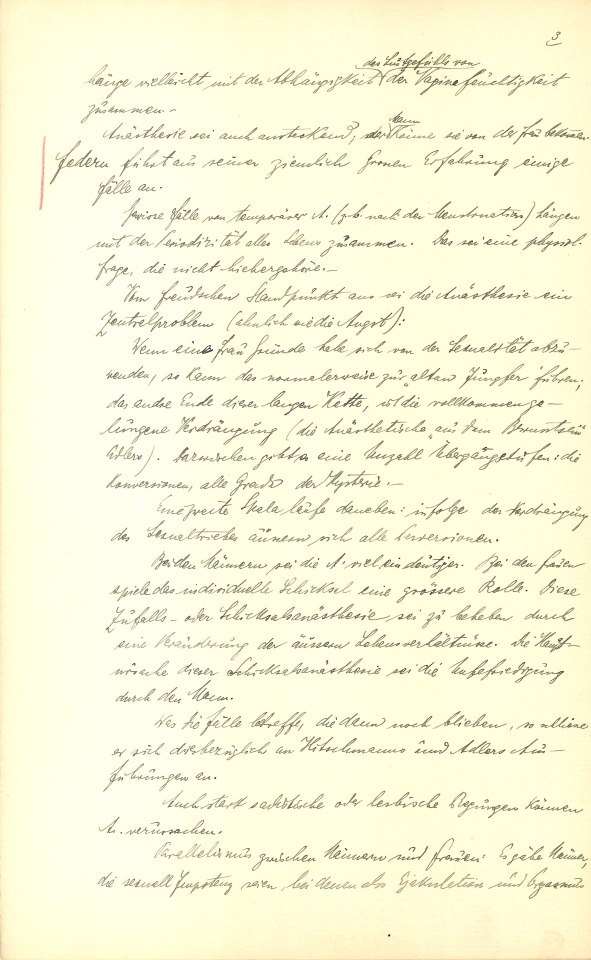 3
des Lustgefühls von
hänge vielleicht mit der Abhängigkeit der Vaginafeuchtigkeit
zusammen.-
Mann
Anästhesie sei auch ansteckend; der könne sie von der Frau bekommen.
Federn führt aus seiner ziemlich grossen Erfahrung einige
Fälle an.
Gewisse Fälle von temporärer A. (z.b. nach der Menstruation) hängen
mit der Periodizität alles Lebens zusammen. Das sei eine physiol.
Frage, die nicht hiehergehöre.-
Vom Freudschen Standpunkt aus sei die Anästhesie ein
Zentralproblem (ähnlich wie die Angst):
Wenn eine Frau Gründe habe, sich von der Sexualität abzu-
wenden, so kann das normalerweise zur "alten Jungfer" führen;
das andre Ende dieser langen Kette, ist die vollkommen ge-
lungene Verdrängung (die Anästhetische "aus dem Bewusstsein"
Adlers). Dazwischen gebt es eine Anzahl Übergangstufen: die
Konversionen, alle Grade der Hysterie.-
Eine zweite Skala laufe daneben: infolge der Verdrängung
des Sexualtriebes äussern sich alle Perversionen.
Bei den Männern sei die A. viel eindeutiger. Bei den Frauen
spiele das individuelle Schicksal eine grössere Rolle. Diese
Zufalls- oder Schicksalsanästhesie sei zu beheben durch
eine Veränderung der äussern Lebensverhältnisse. Die Haupt-
ursache dieser Schicksalsanästhesie sei die Unbefriedigung
durch den Mann.
Was die Fälle betreffe, die dann noch blieben, so schliesse
er sich diesbezüglich an Hitschmanns und Adlers Aus-
führungen an.
Auch stark sadistische oder lesbische Regungen können
A. verursachen.
Parallelismus zwischen Männern und Frauen: Es gäbe Männer,
die sexuell Impotenz seien, bei denen also Ejakulation und Orgasmus